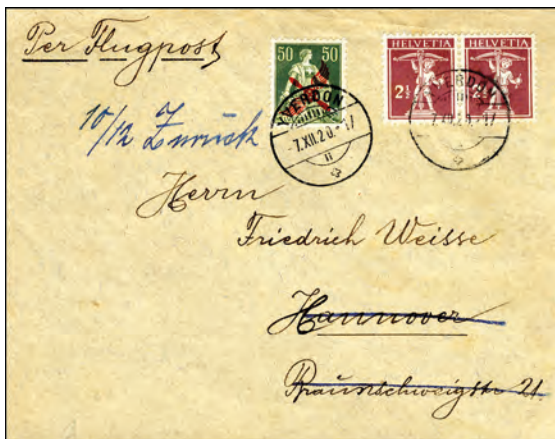 Per Flugpost
50 50
HELVETIA HELVETIA
2½ 2½
YVERDON
7.XII.20.-17
YVERDON
7.XII.20.-17
10/12 Zurück
Herrn
Friedrich Weisse
Hannover
Braunschweigstr 21.